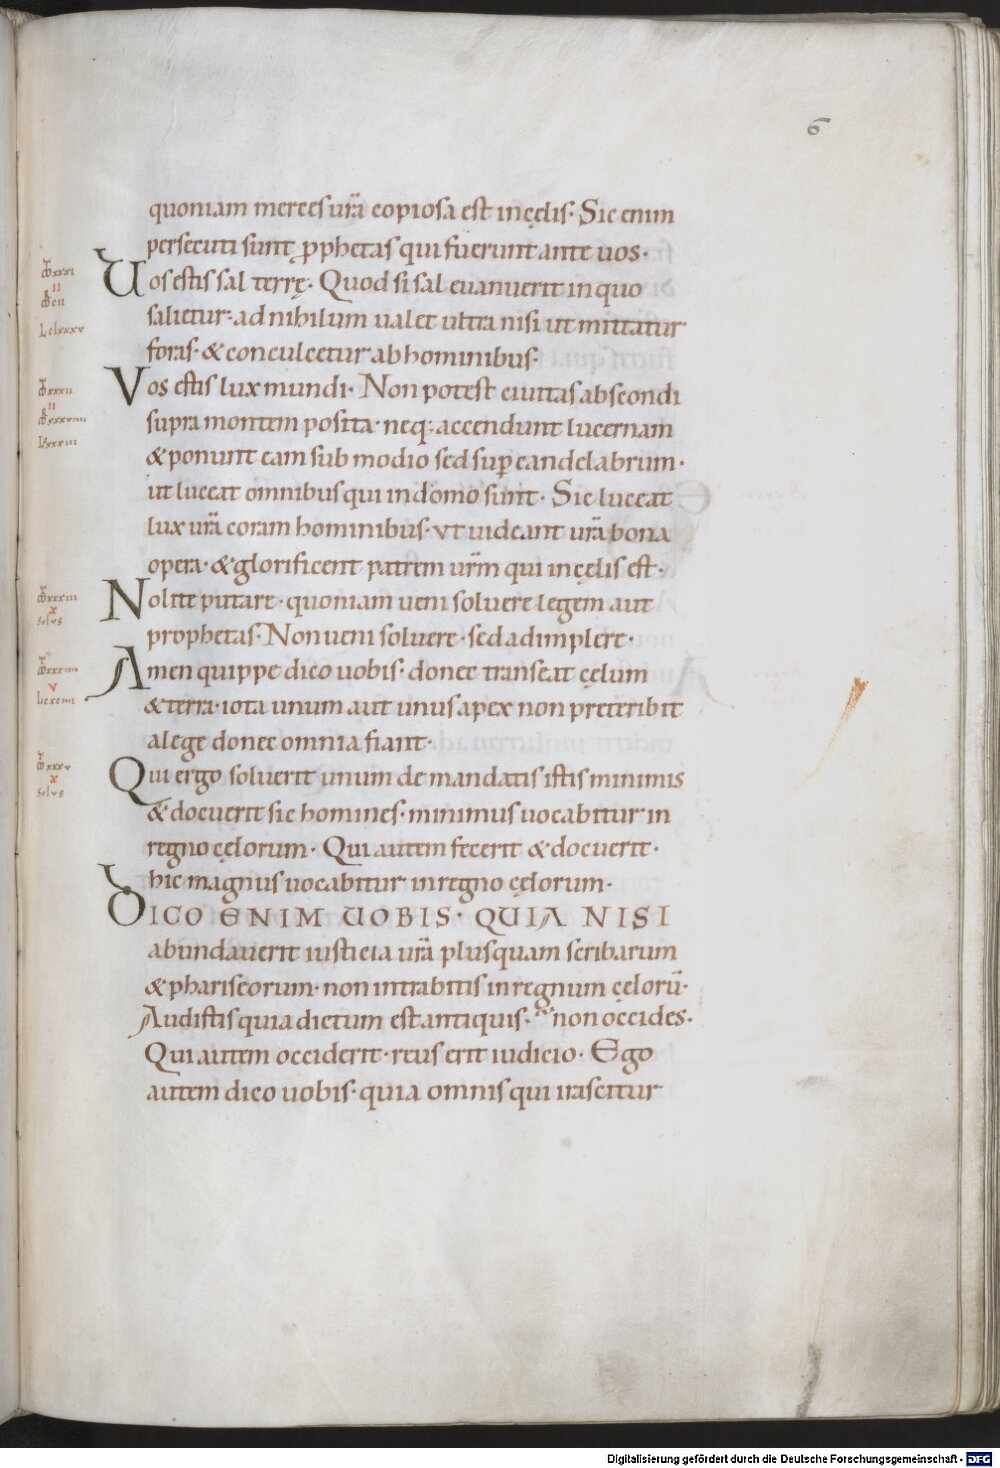 6
quoniam merces ur̃a copiosa est in cęlis· Sic enim
persecuti sunt ꝓphetas qui fuerunt ante uos·
Uos estis sal terrę· Quod si sal euanuerit in quo
salietur· ad nihilum ualet ultra nisi ut mittatur
foras· & conculcetur ab hominibus·
Vos estis lux mundi· Non potest ciuitas abscondi
supra montem posita· neq; accendunt lucernam
& ponunt eam sub modio sed sup̱ candelabrum·
ut luceat omnibus qui in domo sunt· Sic luceat
lux ur̃a coram hominibus· vt uideant ur̃a bona
opera· & glorificent patrem ur̃m qui in cęlis est·
Nolite putare· quoniam ueni soluere legem aut
prophetas· Non ueni soluere· sed adimplere·
Amen quippe dico uobis· donec transeat cęlum
& terra· iota unum aut unus apex non preteribit
a lege donec omnia fiant·
Qui ergo soluerit unum de mandatis istis minimis
& docuerit sic homines· minimus uocabitur in
regno cęlorum· Qui autem fecerit & docuerit·
hic magnus uocabitur in regno cęlorum·
DICO ENIM UOBIS· QUIA NISI
abundauerit iusticia ur̃a plusquam scribarum
& phariseorum· non intrabitis in regnum cęlorũ·
Audistis quia dictum est antiquis· non occides·
Qui autem occiderit· reus erit iudicio· Ego
autem dico uobis· quia omnis qui irascitur
Digitalisierung gefördert durch die Deutsche Forschungsgemeinschaft - DFG